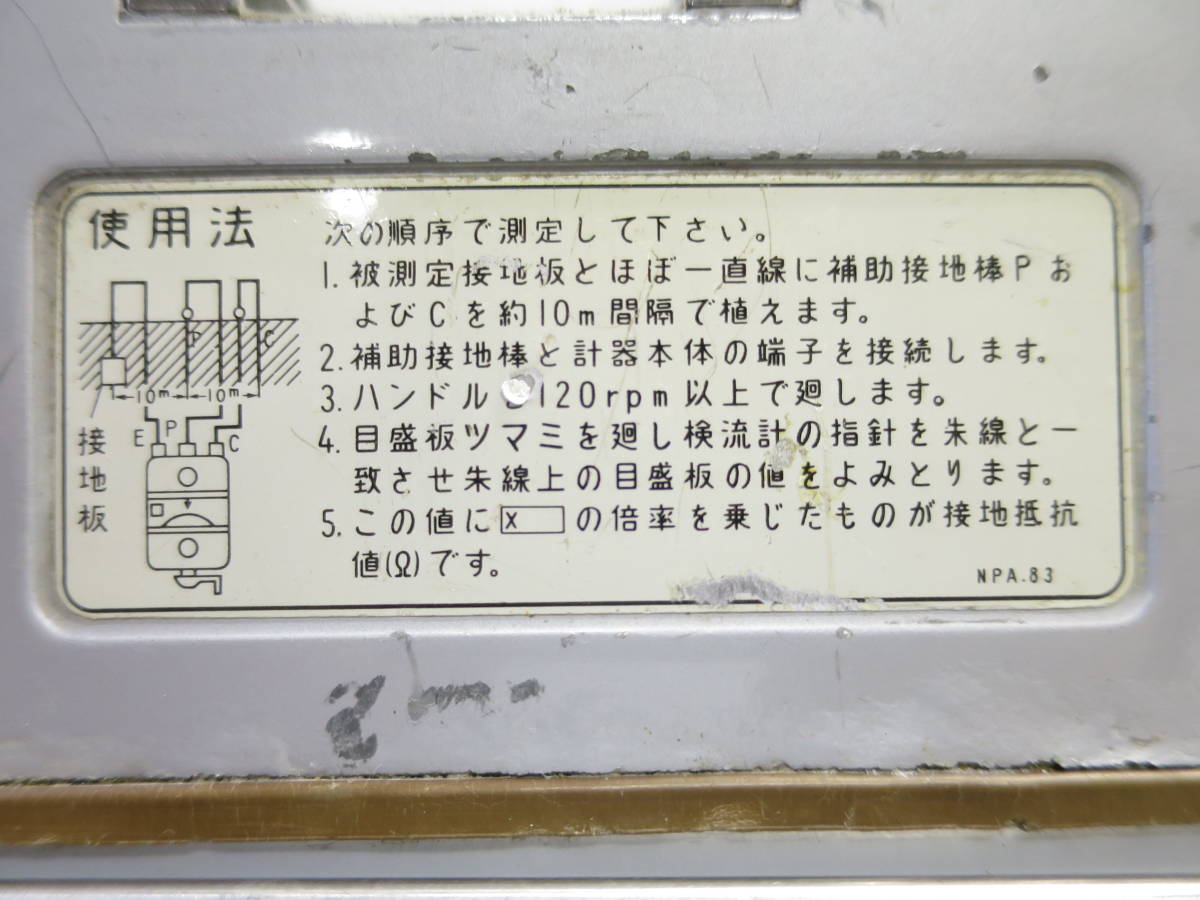 使用法
次の順序で測定して下さい。
1. 被測定接地板とほぼ一直線に補助接地棒Pお
よびCを約10m間隔で植えます。
2. 補助接地棒と計器本体の端子を接続します。
3. ハンドル 120rpm以上で廻します。
4. 目盛板ツマミを廻し検流計の指針を朱線と一
致させ朱線上の目盛板の値をよみとります。
5. この値に x の倍率を乗じたものが接地抵抗
値(Ω)です。
NPA.83
P C
10m 10m
E P C
接地板